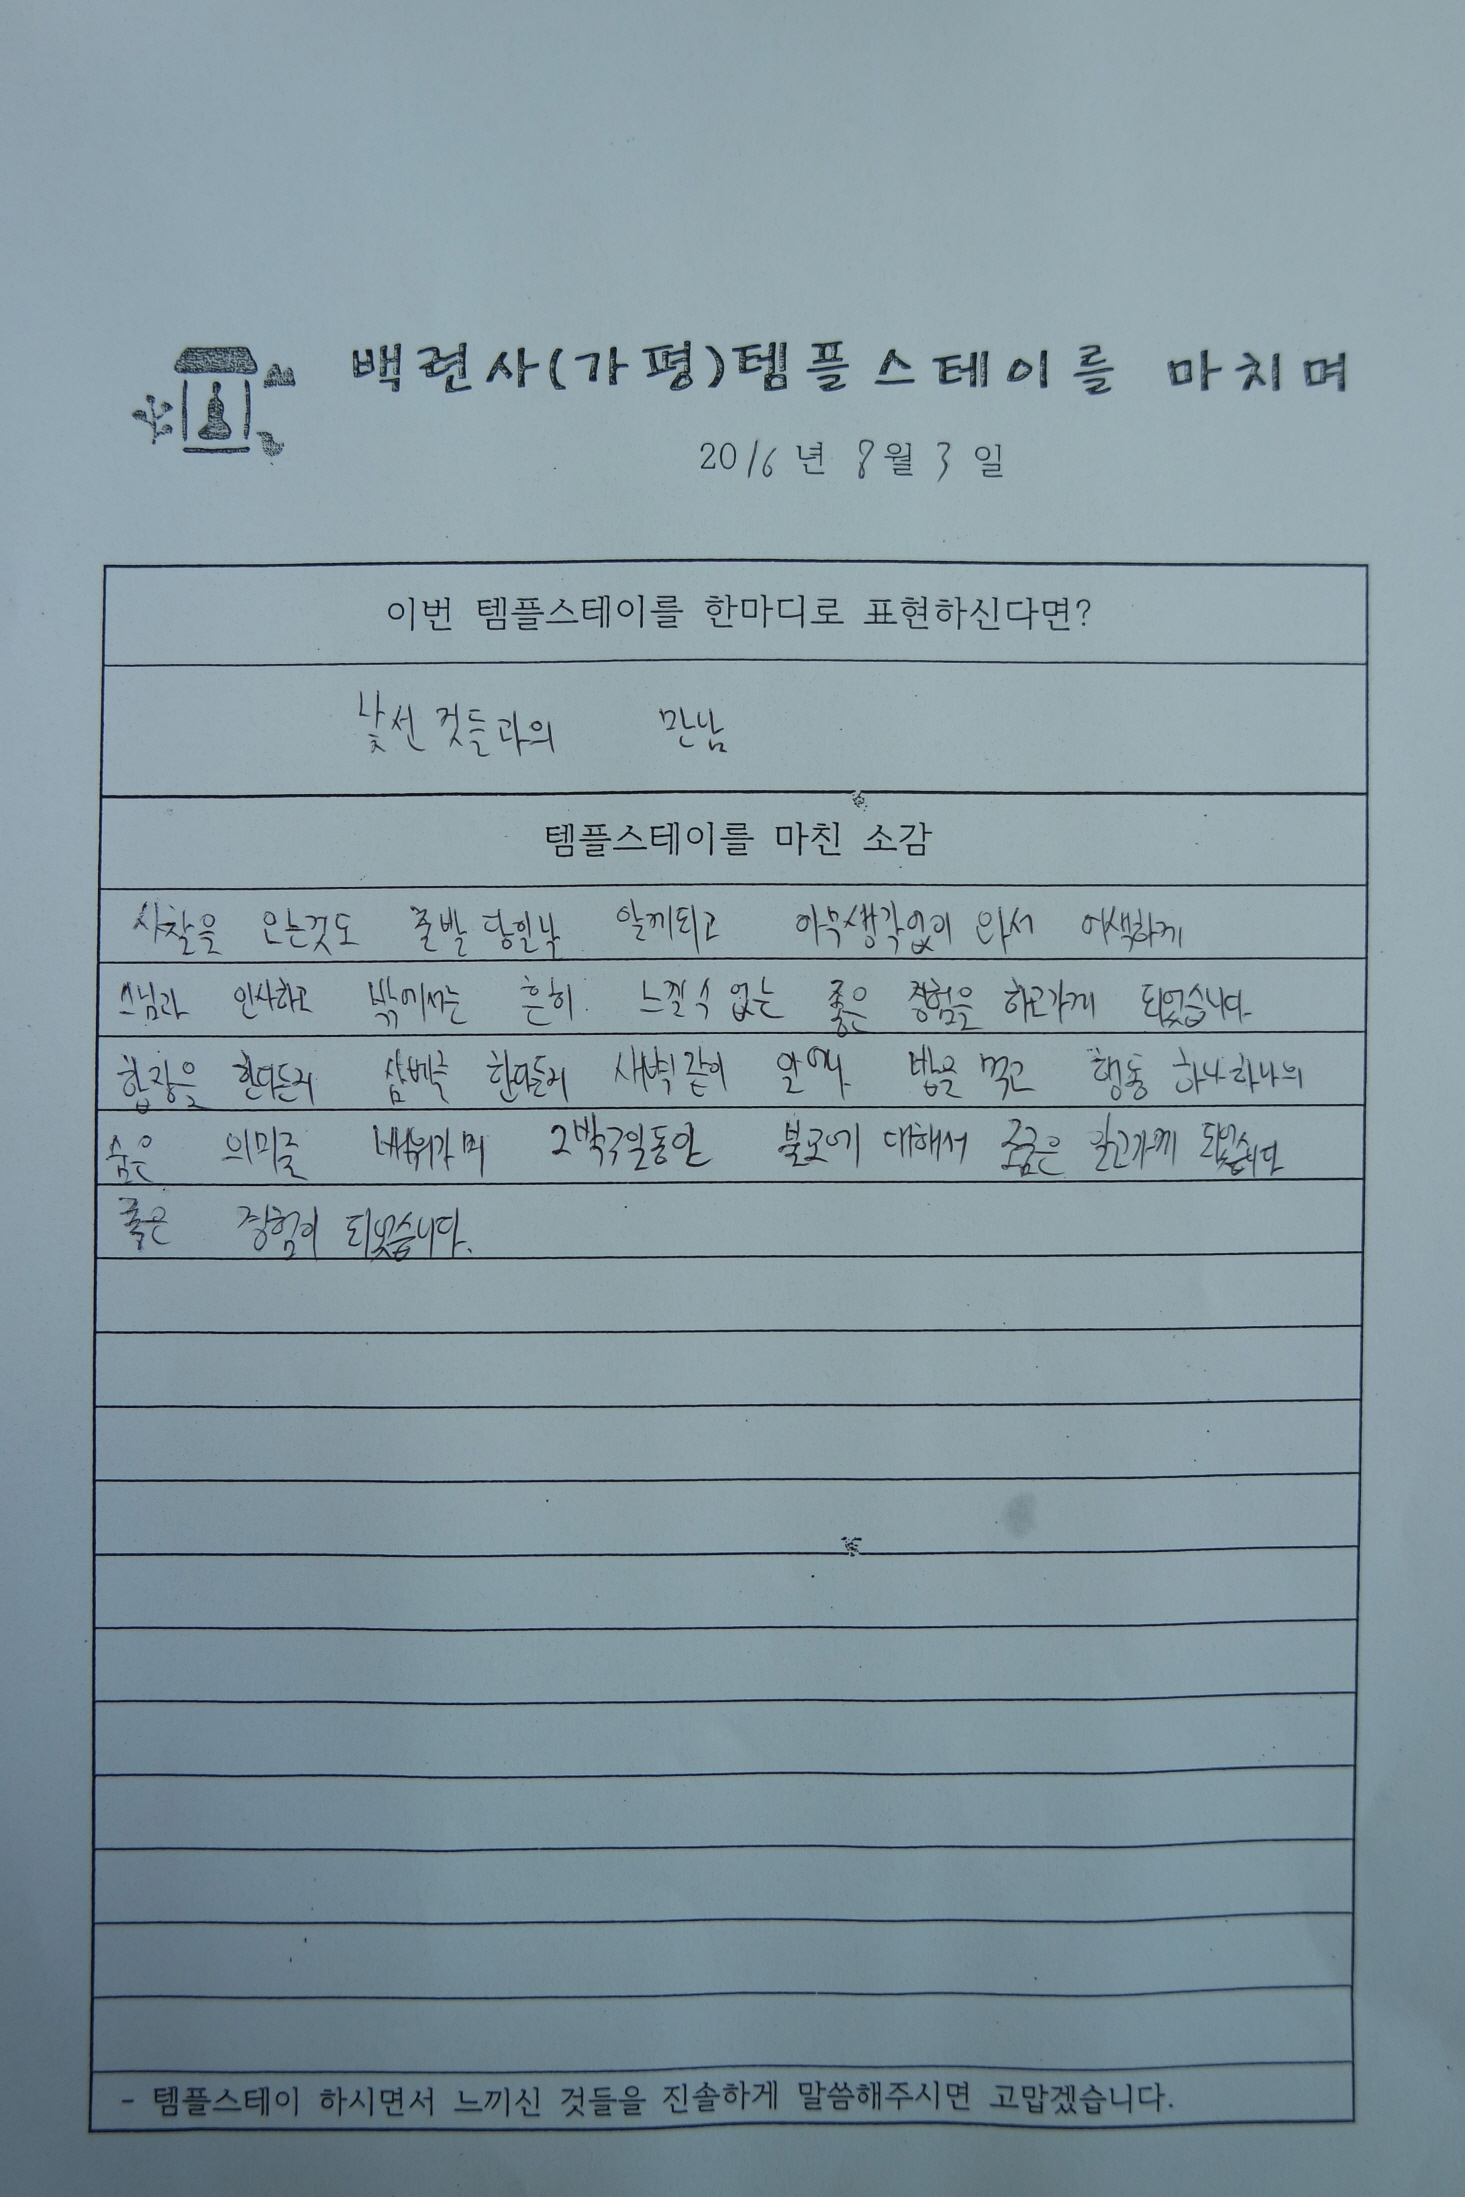 백련사(가평)템플스테이를 마치며
2016년 8월 3일
이번 템플스테이를 한마디로 표현하신다면?
낯선 것들과의 만남
템플스테이를 마친 소감
사찰을 오는것도 출발 당일날 알게되고 아무생각없이 와서 어색하게
스님과 인사하고 밖에서는 흔히 느낄 수 없는 좋은 경험을 하고가게 되었습니다.
합장을 한다든지 삼배를 한다든지 새벽같이 일어나 밥을 먹고 행동 하나하나의
숨은 의미를 배워가며 2박3일동안 불교에 대해서 조금은 알고가게 되었습니다
좋은 경험이 되었습니다.
- 템플스테이 하시면서 느끼신 것들을 진솔하게 말씀해주시면 고맙겠습니다.